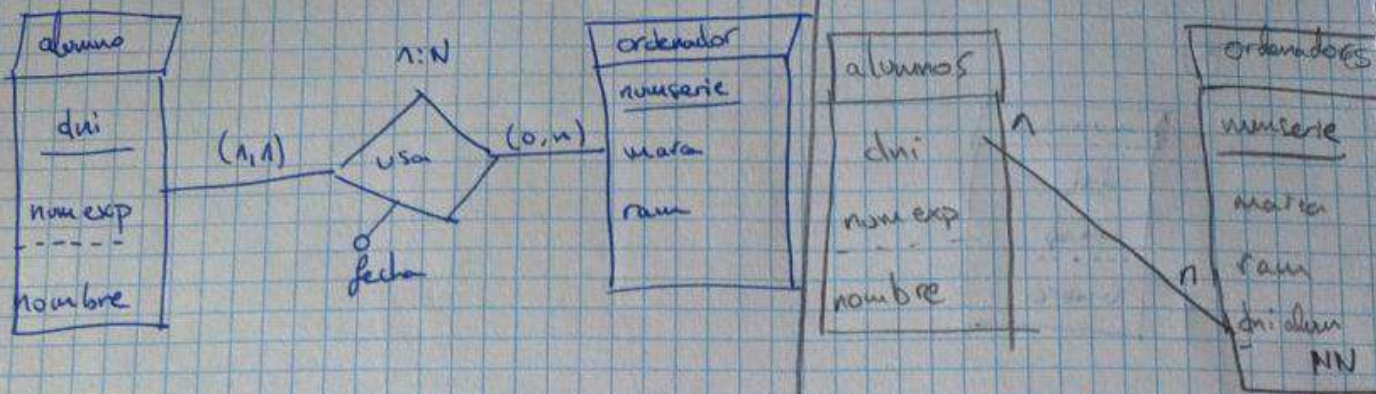 alumno
dni
numexp
nombre
(1,1)
1:N
usa
fecha
(0,n)
ordenador
numserie
marca
ram
alumnos
dni
numexp
nombre
1
n
ordenadores
numserie
marca
ram
dni alum
NN